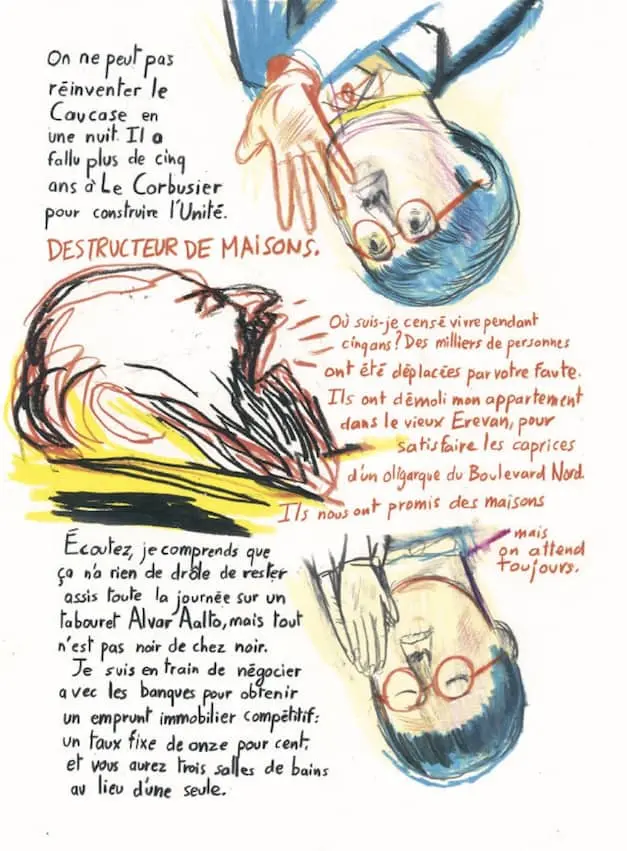 On ne peut pas
réinventer le
Caucase en
une nuit. Il a
fallu plus de cinq
ans à Le Corbusier
pour construire l'Unité.
DESTRUCTEUR DE MAISONS.
Où suis-je censé vivre pendant
cinq ans? Des milliers de personnes
ont été déplacées par votre faute.
Ils ont démoli mon appartement
dans le vieux Erevan, pour
satisfaire les caprices
d'un oligarque du Boulevard Nord.
Ils nous ont promis des maisons
mais
on attend
toujours.
Écoutez, je comprends que
ça n'a rien de drôle de rester
assis toute la journée sur un
tabouret Alvar Aalto, mais tout
n'est pas noir de chez noir.
Je suis en train de négocier
avec les banques pour obtenir
un emprunt immobilier compétitif:
un taux fixe de onze pour cent,
et vous aurez trois salles de bains
au lieu d'une seule.